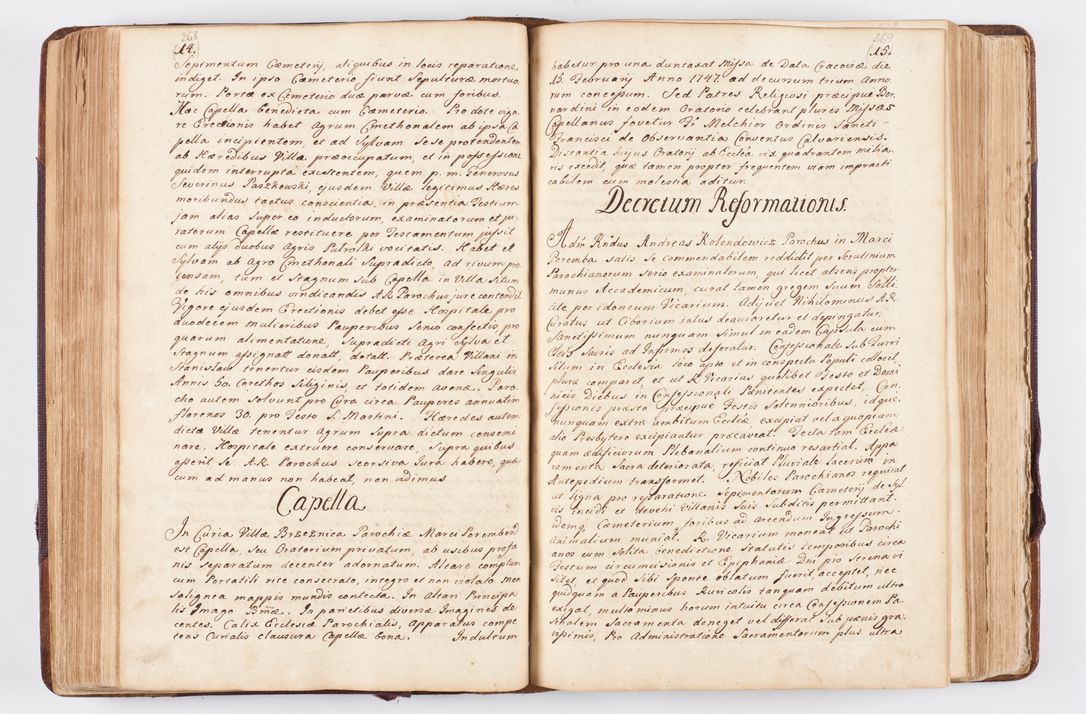 268
14.
Sepimentum Cæmeterij, aliquibus in locis reparatione
indiget. In ipso Cæmeterio fiunt Sepulturæ mortuo
rum. Portæ ex Cæmeterio duæ parvæ cum foribus.
Hæc Capella benedicta cum Cæmeterio. Pro dote vigo
re Erectionis habet Agrum Cmethonalem ab ipsa Ca
pella incipientem, et ad Sylvam Sese protendentem
ab Hæredibus Villæ præoccupatum, et in possessione
quidem interrupta existentem, quem p. m. Generosus
Severinus Paszkowski, ejusdem Villæ legitimus Hæres
moribundus tactus conscientia, in præsentia Testium
jam alias Super eo inductorum, examinatorum et ju-
ratorum Capellæ restituere per Testamentum jussit
cum alijs duobus Agris vocitatis. Habet et
Sylvam ab Agro Cmethonali Supradicto, ad rivum pro
tensam, tum et Stagnum Sub Capella in Villa Situm
de his omnibus vindicandis A.R. Parochus jure contendit
Vigore ejusdem Erectionis debet esse Hospitale pro
duodecem mulieribus Pauperibus Senio confectis, pro
quarum alimentatione, Supradicti Agri Sylva et
Stagnum assignatt donatt, dotatt. Præterea Villani in
Stanisław tenentur eisdem Pauperibus dare Singulis
Annis 50. Corethos Siliginis, et totidem avenæ. Paro
cho autem Solvunt pro Cura circa Pauperes annuatim
florenos 30. pro Festo S. Martini. Hæredes autem
dictæ Villæ tenentur Agrum Supra dictum consemi
nare, Hospitale extruere conservare, Supra quibus
asserit Se A.R. Parochus Seorsiva Jura habere, quæ
cum ad manus non habeat, non vidimus
Capella
In Curia Villæ Brzeznica Parochiæ Marci Poremben
est Capella, Seu Oratorium privatum, ab usibus profa
nis Separatum decenter adornatum. Altare completum
cum Portatili rite consecrato, integro et non violato men
sa lignea mappis mundis contecta. In Altari Principa
lis Imago Bmæ. In parietibus diversæ Imagines de
centes. Calix Ecclesiæ Parochialis, Apparatus compe
tens Curialis clausura Capellæ bona. Indultum
269
15.
habetur pro una duntaxat Missa de Data Cracoviæ die
15 Februarij Anno 1747 ad decursum trium Anno
rum concessum. Sed Patres Religiosi præcipue Ber
nardini in eodem Oratorio celebrant plures Missas
Capellanus fovetur Fr Melchior Ordinis Sancti-
Francisci de Observantia Conventus Calvariensis.
Distantia hujus Oratorij ab Ecclia vix quadrantem milia
ris excedit, quæ tamen propter frequentem viam impracti
cabilem cum molestia aditur.
Decretum Reformationis.
Adm Rndus Andreas Kolendowicz Parochus in Marci
Poremba satis Se commendabilem reddidit per Scrutinium
Parochianorum Serio examinatorum, qui licet absens propter
munus Academicum, curat tamen gregem Suum Solli
cite per idoneum Vicarium. Adijciet Nihilominus A.R.
Curatus, ut Ciborium intus deauraretur et depingatur.
Sanctissimum nunquam Simul in eadem Capsula cum
Oleo Sacris ad Infirmos deferatur. Confessionale Sub Turri
Situm in Ecclesia loco apto et in conspectu Populi collocet,
plura comparet, et ut R. Vicarius quolibet Festo et Domi
nicis Diebus in Confessionali Pænitentes expectet, Con
fessiones præsto præcipue Festis Solennioribus, idque
nunquam extra ambitum Ecclæ, excipiat vel a quopiam
alio Presbytero excipiantur præcaveat. Tecta tam Ecclesiæ
quam ædificiorum Plebanalium continuo resartiat. Appa
ramenta Sacra deteriorata, reficiat Pluviale lacerum in
Antependium transformet. Nobiles Parochianos requirat
ut ligna pro reparatione Sepimentorum Cæmeterij de Syl
vis incidi et devehi Villanis Suis Subditis permittant.
idemq Cæmeterium foribus ad arcendum Ingressum
Animalium muniat. R. Vicarium moneat ut Parochi
anos cum Solita benedictione Statutis temporibus circa
Festum Circumcisionis et Epiphaniæ Dni pro Strena vi
sitet, et quod Sibi Sponte oblatum fuerit acceptet, nec
quidquam a Pauperibus Auricolis tanquam debitum ultro
exigat, multo minus horum intuitu circa Confessionem Pa
schalem Sacramenta deneget vel differat Sub pænis gra
vissimis, Pro Administratione Sacramentorum plus ultra